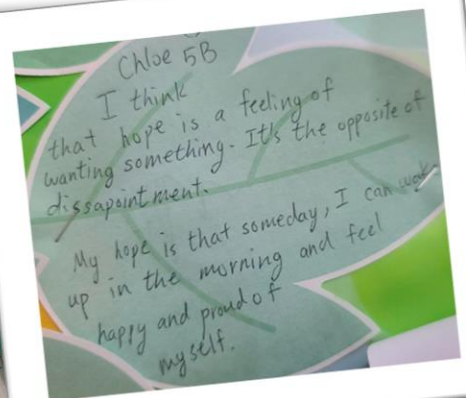 Chloe 5B
I think
that hope is a feeling of
wanting something. It's the opposite of
dissapointment.
My hope is that someday, I can wake
up in the morning and feel
happy and proud of
myself.